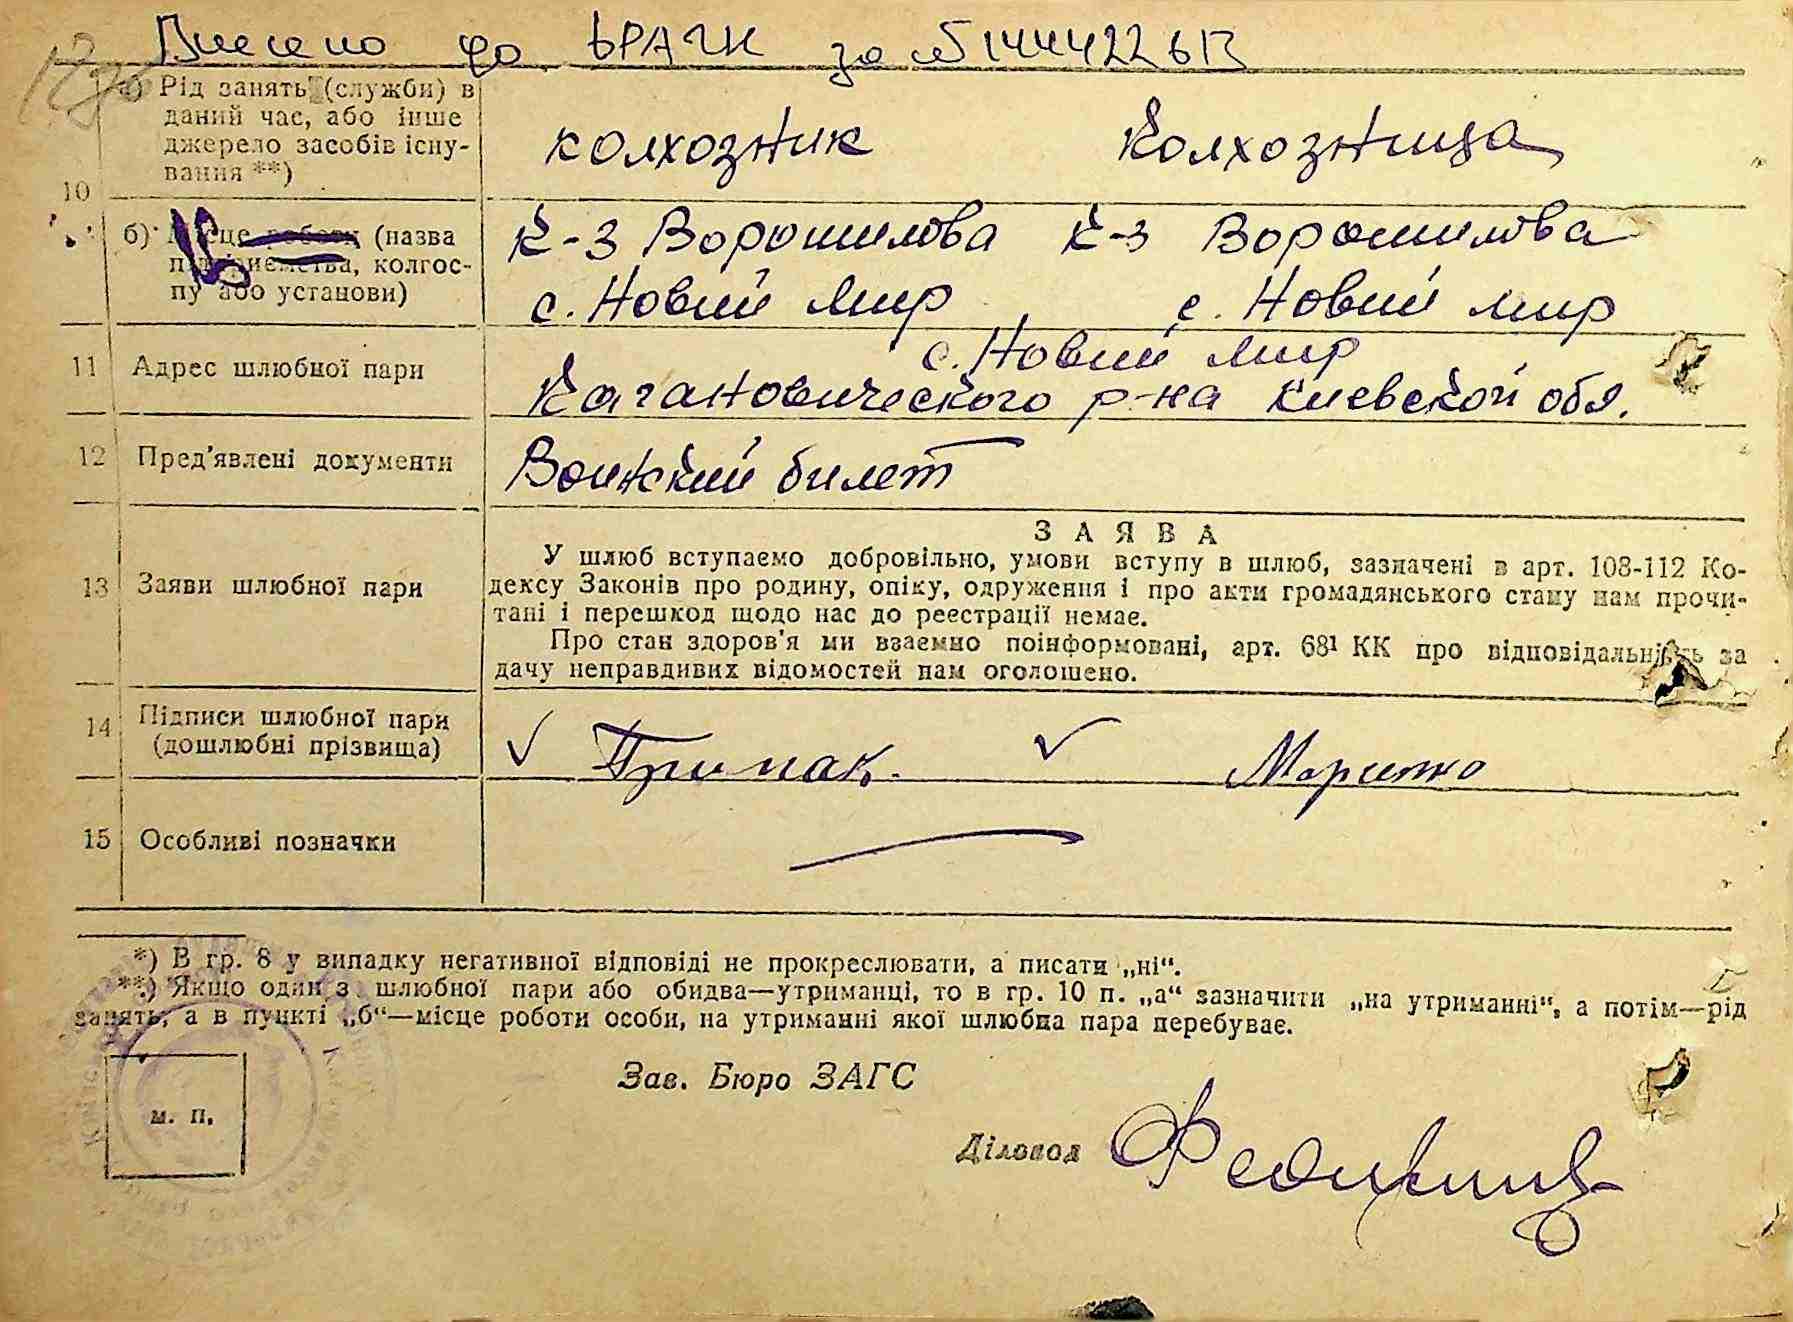 Внесено до ДРАЦГ за №144422613
10
а) Рід занять (служби) в
даний час, або інше
джерело засобів існу-
вання **)
колхозник колхозница
б) Місце роботи (назва
підприємства, колгос-
пу або установи)
к-з Ворошилова к-з Ворошилова
с. Новый мир с. Новый мир
11 Адрес шлюбної пари
с. Новый мир
Кагановического р-на Киевской обл.
12 Пред'явлені документи
Воинский билет
13 Заяви шлюбної пари
ЗАЯВА
У шлюб вступаємо добровільно, умови вступу в шлюб, зазначені в арт. 108-112 Ко-
дексу Законів про родину, опіку, одруження і про акти громадянського стану нам прочи-
тані і перешкод щодо нас до реєстрації немає.
Про стан здоров'я ми взаємно поінформовані, арт. 68¹ КК про відповідальність за
дачу неправдивих відомостей нам оголошено.
14 Підписи шлюбної пари
(дошлюбні прізвища)
Примак.
15 Особливі позначки
*) В гр. 8 у випадку негативної відповіді не прокреслювати, а писати „ні“.
**) Якщо один з шлюбної пари або обидва—утриманці, то в гр. 10 п. „а“ зазначити „на утриманні“, а потім—рід
занять, а в пункті „б“—місце роботи особи, на утриманні якої шлюбна пара перебуває.
м. п.
Зав. Бюро ЗАГС
Діловод